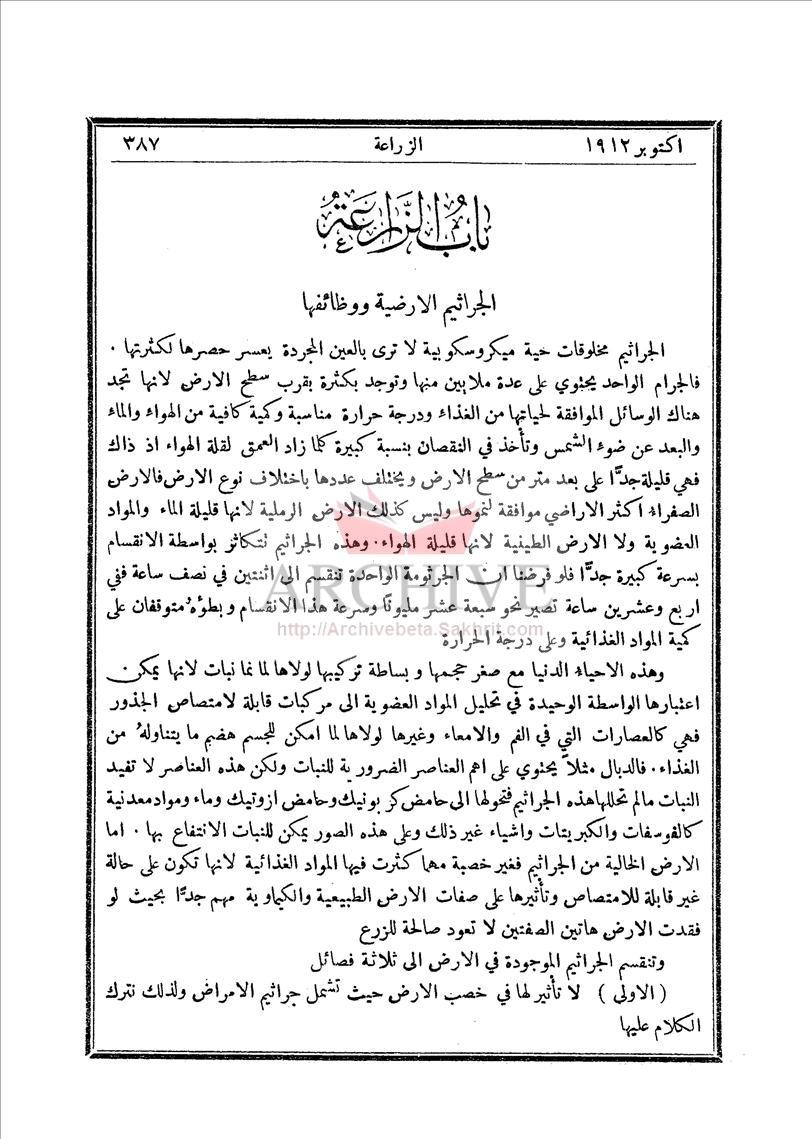 اكتوبر ١٩١٢ الزراعة ٣٨٧
باب الزراعة
الجراثيم الارضية ووظائفها
الجراثيم مخلوقات حية ميكروسكوبية لا ترى بالعين المجردة يعسر حصرها لكثرتها ٠
فالجرام الواحد يحتوي على عدة ملايين منها وتوجد بكثرة بقرب سطح الارض لانها تجد
هناك الوسائل الموافقة لحياتها من الغذاء ودرجة حرارة مناسبة وكمية كافية من الهواء والماء
والبعد عن ضوء الشمس وتأخذ في النقصان بنسبة كبيرة كلما زاد العمق لقلة الهواء اذ ذاك
فهي قليلة جدًّا على بعد متر من سطح الارض ويختلف عددها باختلاف نوع الارض فالارض
الصفراء اكثر الاراضي موافقة لنموها وليس كذلك الارض الرملية لانها قليلة الماء والمواد
العضوية ولا الارض الطينية لانها قليلة الهواء٠ وهذه الجراثيم تتكاثر بواسطة الانقسام
بسرعة كبيرة جدًّا فلو فرضنا ان الجرثومة الواحدة تنقسم الى اثنتين في نصف ساعة ففي
اربع وعشرين ساعة تصير نحو سبعة عشر مليونًا وسرعة هذا الانقسام وبطؤهُ متوقفان على
كمية المواد الغذائية وعلى درجة الحرارة
وهذه الاحياء الدنيا مع صغر حجمها وبساطة تركيبها لولاها لما نما نبات لانها يمكن
اعتبارها الواسطة الوحيدة في تحليل المواد العضوية الى مركبات قابلة لامتصاص الجذور
فهي كالعصارات التي في الفم والامعاء وغيرها لولاها لما امكن للجسم هضم ما يتناولهُ من
الغذاء٠ فالدبال مثلاً يحتوي على اهم العناصر الضرورية للنبات ولكن هذه العناصر لا تفيد
النبات مالم تحللها هذه الجراثيم فتحولها الى حامض كربونيك وحامض ازوتيك وماء ومواد معدنية
كالفوسفات والكبريتات واشياء غير ذلك وعلى هذه الصور يمكن للنبات الانتفاع بها ٠ اما
الارض الخالية من الجراثيم فغير خصبة مهما كثرت فيها المواد الغذائية لانها تكون على حالة
غير قابلة للامتصاص وتأثيرها على صفات الارض الطبيعية والكيماوية مهم جدًّا بحيث لو
فقدت الارض هاتين الصفتين لا تعود صالحة للزرع
وتنقسم الجراثيم الموجودة في الارض الى ثلاثة فصائل
( الاولى ) لا تأثير لها في خصب الارض حيث تشمل جراثيم الامراض ولذلك نترك
الكلام عليها
ARCHIVE
http://Archivebeta.Sakhrit.com